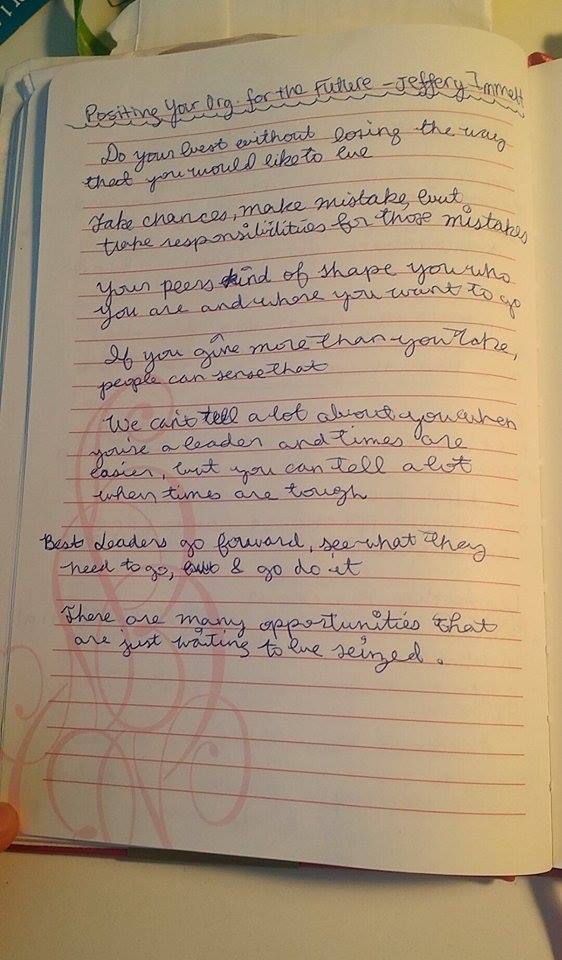 Positing Your Org. for the Future - Jeffery Immelt
Do your best without losing the way
that you would like to be
Take chances, make mistake, but
take responsibilities for those mistakes
Your peers kind of shape you who
you are and where you want to go
If you give more than you take,
people can sense that
We can't tell a lot about you when
you're a leader and times are
easier, but you can tell a lot
when times are tough
Best Leaders go forward, see what they
need to go, & go do it
There are many opportunities that
are just waiting to be seized.